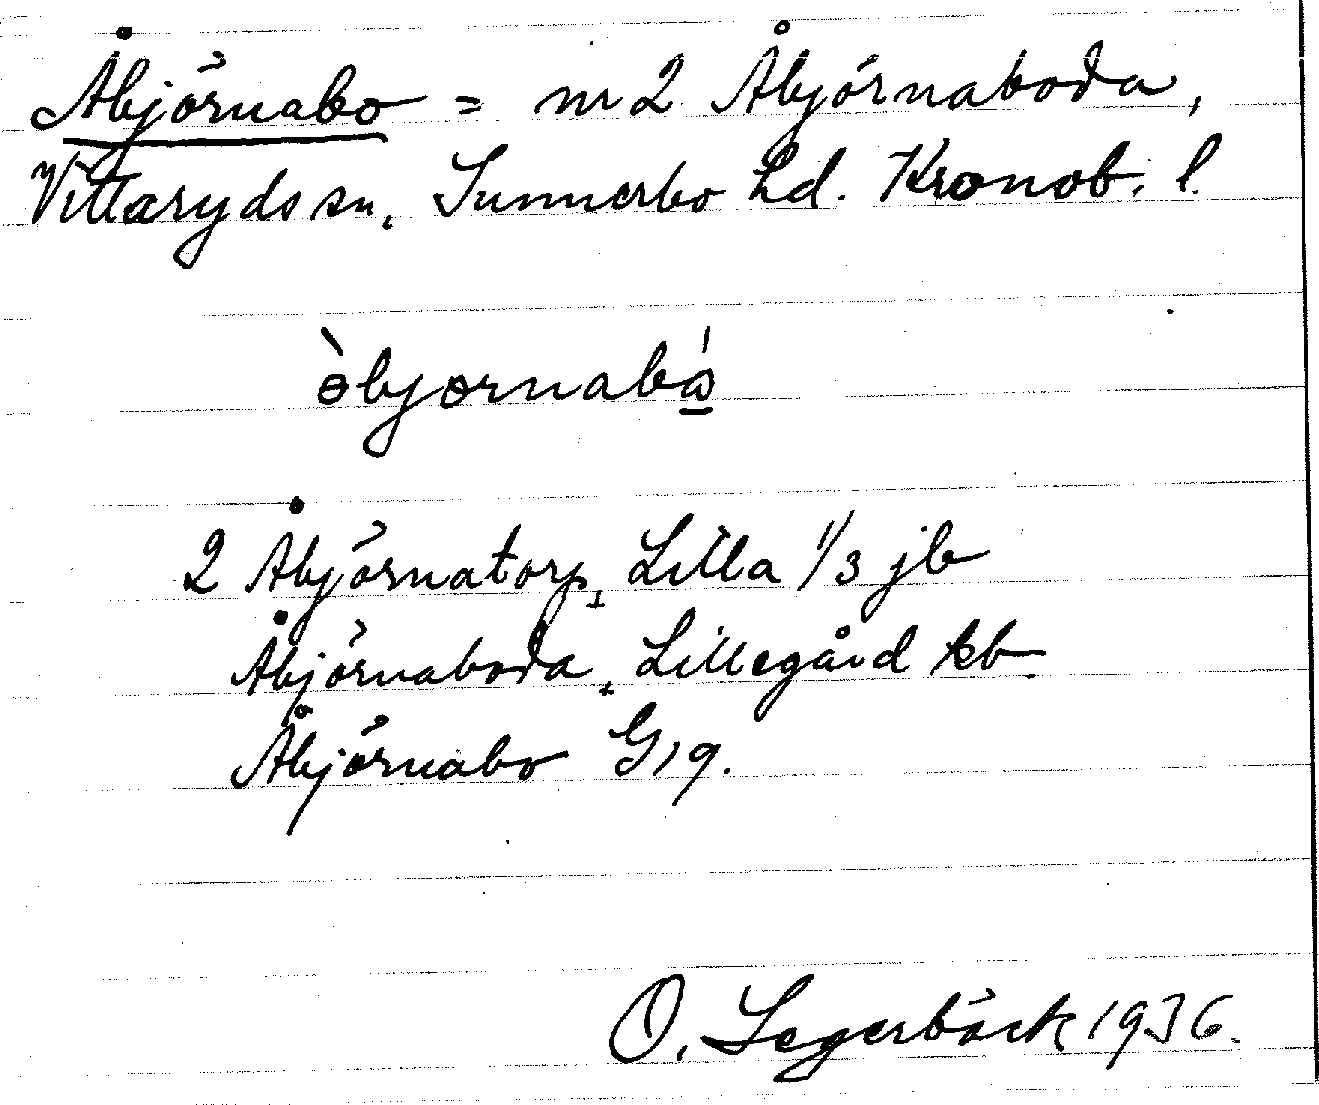 Åbjörnabo = nr 2 Åbjörnaboda,
Vittaryds sn, Sunnerbo hd. Kronob. l.
ɵ̀bjɵrnabó̱
2 Åbjörnatorp, Lilla 1/3 jb
Åbjörnaboda, Lillegård kb
Åbjörnabo G19.
O. Segerbäck 1936.